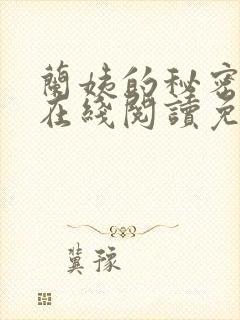 蘭姨的秘密
在綫閱讀免
冀豫